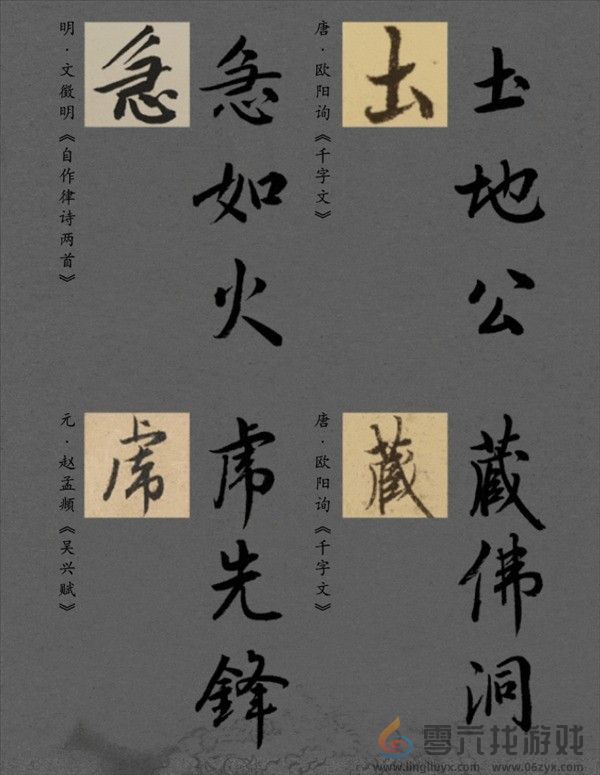 土地公
土
唐·欧阳询《千字文》
急如火
急
明·文徵明《自作律诗两首》
藏佛洞
藏
唐·欧阳询《千字文》
虎先锋
虎
元·赵孟頫《吴兴赋》
零六找游戏
www.lingliuyx.com www.06zyx.com